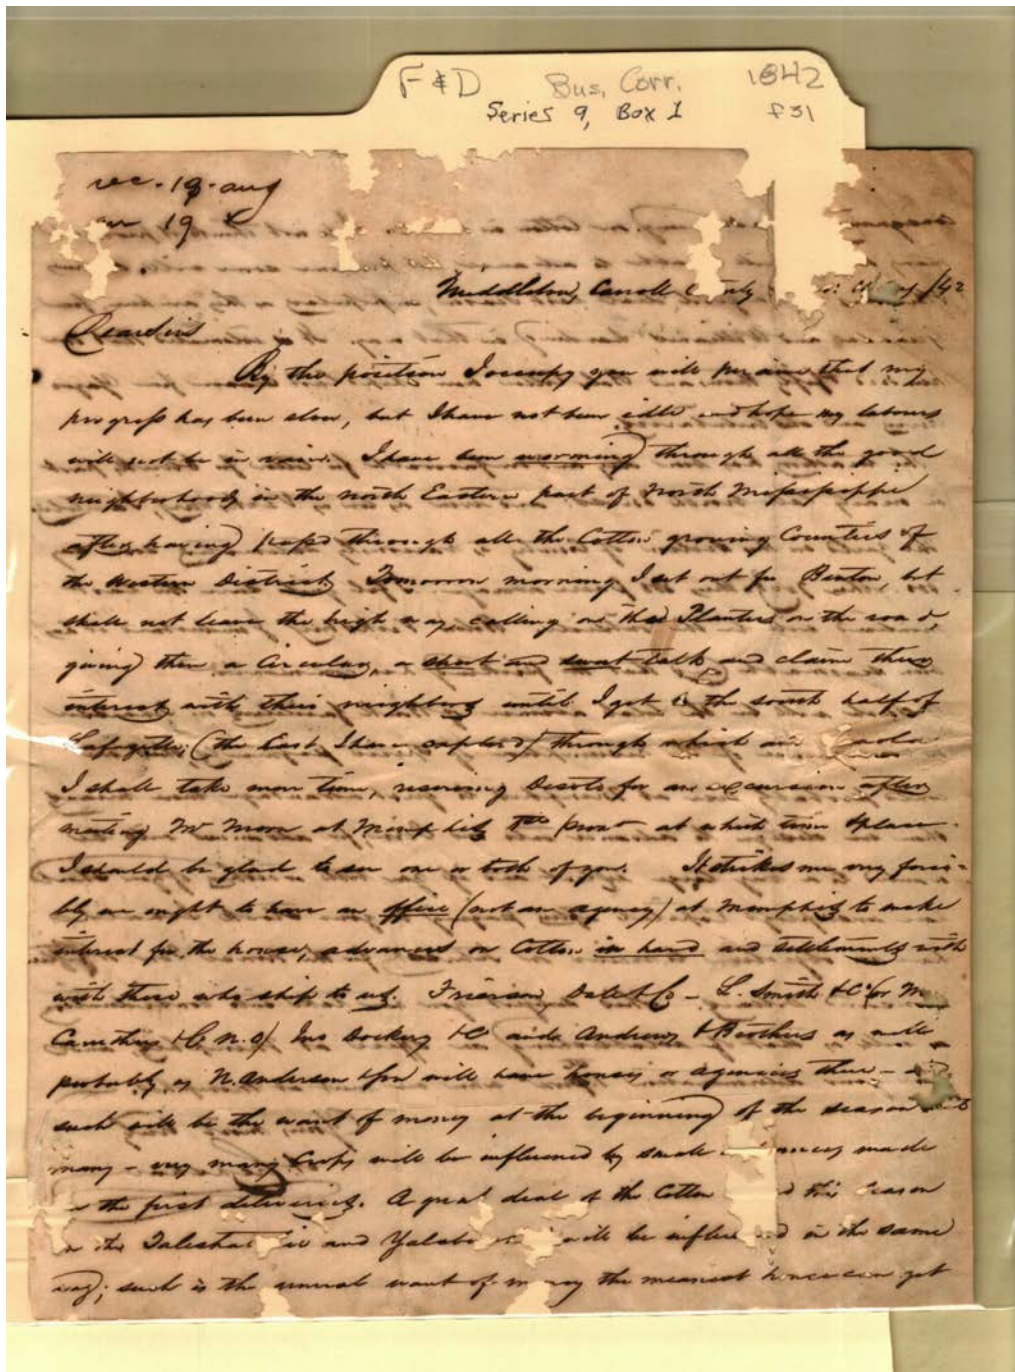 F & D Bus. Corr. 1842
Series 9, Box 1 f 31
rec. 19. aug
19
Middleton, Carroll County /42
Dear Sirs
By the position I occupy you will perceive that my
progress has been slow, but I have not been idle and hope my labours
will not be in vain. I have been worming through all the good
neighborhoods in the north Eastern part of North Mississippi
after having passed through all the Cotton growing Counties of
the Western District. Tomorrow morning I set out for Benton, but
shall not leave the high way, calling on the Planters on the road,
giving them a Circular, a short and sweet talk and claim their
interest with their neighbors until I get to the south half of
Lafayette; (the East I have explored) through which and
I shall take more time, reserving Desoto for an excursion after
meeting Mr Moon at Memphis at which time & place
I should be glad to see one or both of you. It strikes me very forci-
bly we ought to have an office (not an agency) at Memphis to make
interest for the house, advances on Cotton in hand and settlements with
with those who ship to us. Frierson, Dale & Co – L. Smith & Co (or M
Caruthers & Co N. O) Jno Dockery & Co and Andrews & Brothers as well
probably as N. Anderson will have houses or agencies there –
such will be the want of money at the beginning of the season
many – very many Crops will be influenced by small made
the first deliveries. A great deal of the Cotton this season
the and will be in the same
way; such is the want of the meanest house can get